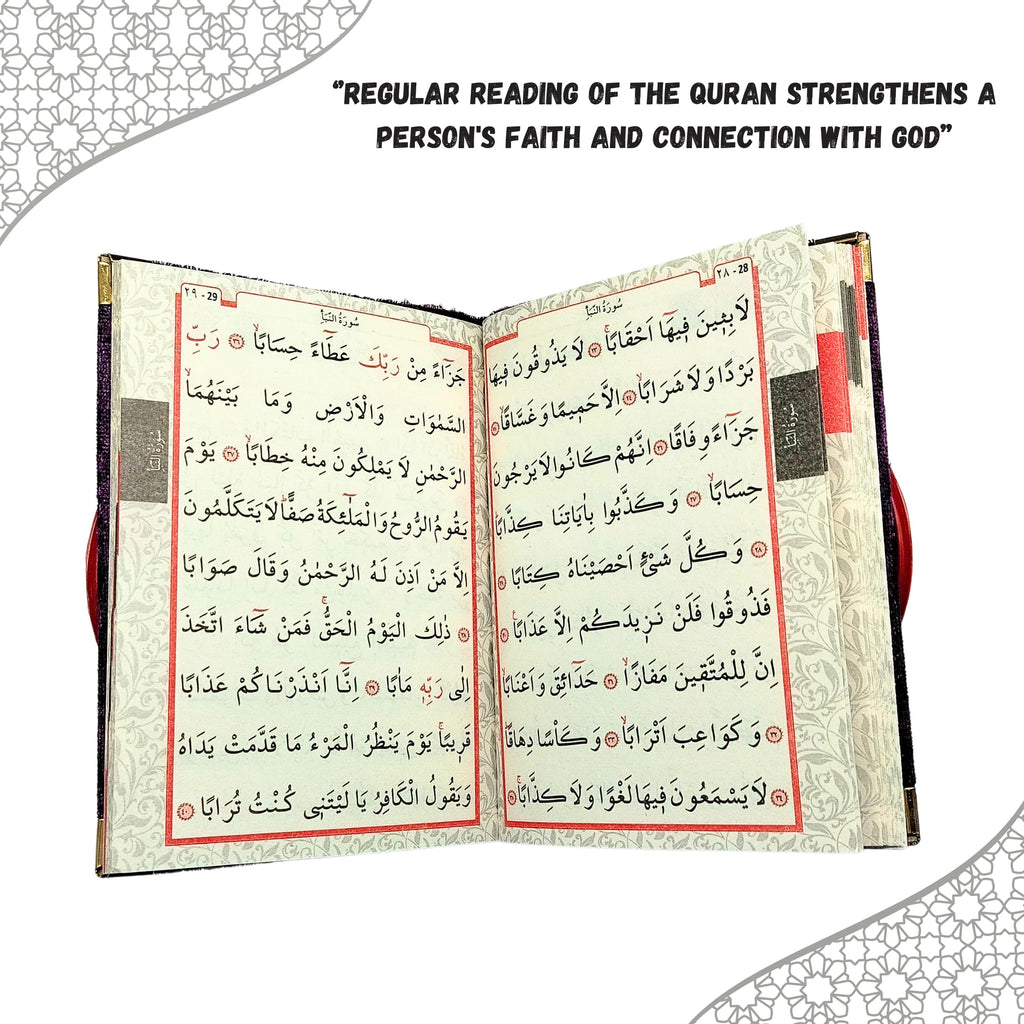 ‘’REGULAR READING OF THE QURAN STRENGTHENS A
PERSON'S FAITH AND CONNECTION WITH GOD’’
٢٨ - 28
سُورَةُ النَّبَأِ
لَابِثٖينَ فٖيهَٓا اَحْقَابًاۚ ﴿٢٣﴾ لَا يَذُوقُونَ فٖيهَا
بَرْدًا وَلَا شَرَابًاۙ ﴿٢٤﴾ اِلَّا حَمٖيمًا وَغَسَّاقًاۙ ﴿٢٥﴾
جَزَٓاءً وِفَاقًاۜ ﴿٢٦﴾ اِنَّهُمْ كَانُوا لَا يَرْجُونَ
حِسَابًاۙ ﴿٢٧﴾ وَكَذَّبُوا بِاٰيَاتِنَا كِذَّابًاۜ
﴿٢٨﴾ وَكُلَّ شَيْءٍ اَحْصَيْنَاهُ كِتَابًاۙ ﴿٢٩﴾
فَذُوقُوا فَلَنْ نَزٖيدَكُمْ اِلَّا عَذَابًاۚ ﴿٣٠﴾
اِنَّ لِلْمُتَّقٖينَ مَفَازًاۙ ﴿٣١﴾ حَدَٓائِقَ وَاَعْنَابًاۙ
﴿٣٢﴾ وَكَوَاعِبَ اَتْرَابًاۙ ﴿٣٣﴾ وَكَأْسًا دِهَاقًاۜ
﴿٣٤﴾ لَا يَسْمَعُونَ فٖيهَا لَغْوًا وَلَا كِذَّابًاۚ ﴿٣٥﴾
سُورَةُ النَّبَأِ
٢٩ - 29
سُورَةُ النَّبَأِ
جَزَٓاءً مِنْ رَبِّكَ عَطَٓاءً حِسَابًاۙ ﴿٣٦﴾ رَبِّ
السَّمٰوَاتِ وَالْاَرْضِ وَمَا بَيْنَهُمَاۙ
الرَّحْمٰنِ لَا يَمْلِكُونَ مِنْهُ خِطَابًاۙ ﴿٣٧﴾ يَوْمَ
يَقُومُ الرُّوحُ وَالْمَلٰٓئِكَةُ صَفًّاۜ لَا يَتَكَلَّمُونَ
اِلَّا مَنْ اَذِنَ لَهُ الرَّحْمٰنُ وَقَالَ صَوَابًا
﴿٣٨﴾ ذٰلِكَ الْيَوْمُ الْحَقُّۚ فَمَنْ شَٓاءَ اتَّخَذَ
اِلٰى رَبِّهٖ مَاٰبًا ﴿٣٩﴾ اِنَّٓا اَنْذَرْنَاكُمْ عَذَابًا
قَرٖيبًاۚ يَوْمَ يَنْظُرُ الْمَرْءُ مَا قَدَّمَتْ يَدَاهُ
وَيَقُولُ الْكَافِرُ يَا لَيْتَنٖي كُنْتُ تُرَابًا ﴿٤٠﴾
سُورَةُ النَّبَأِ